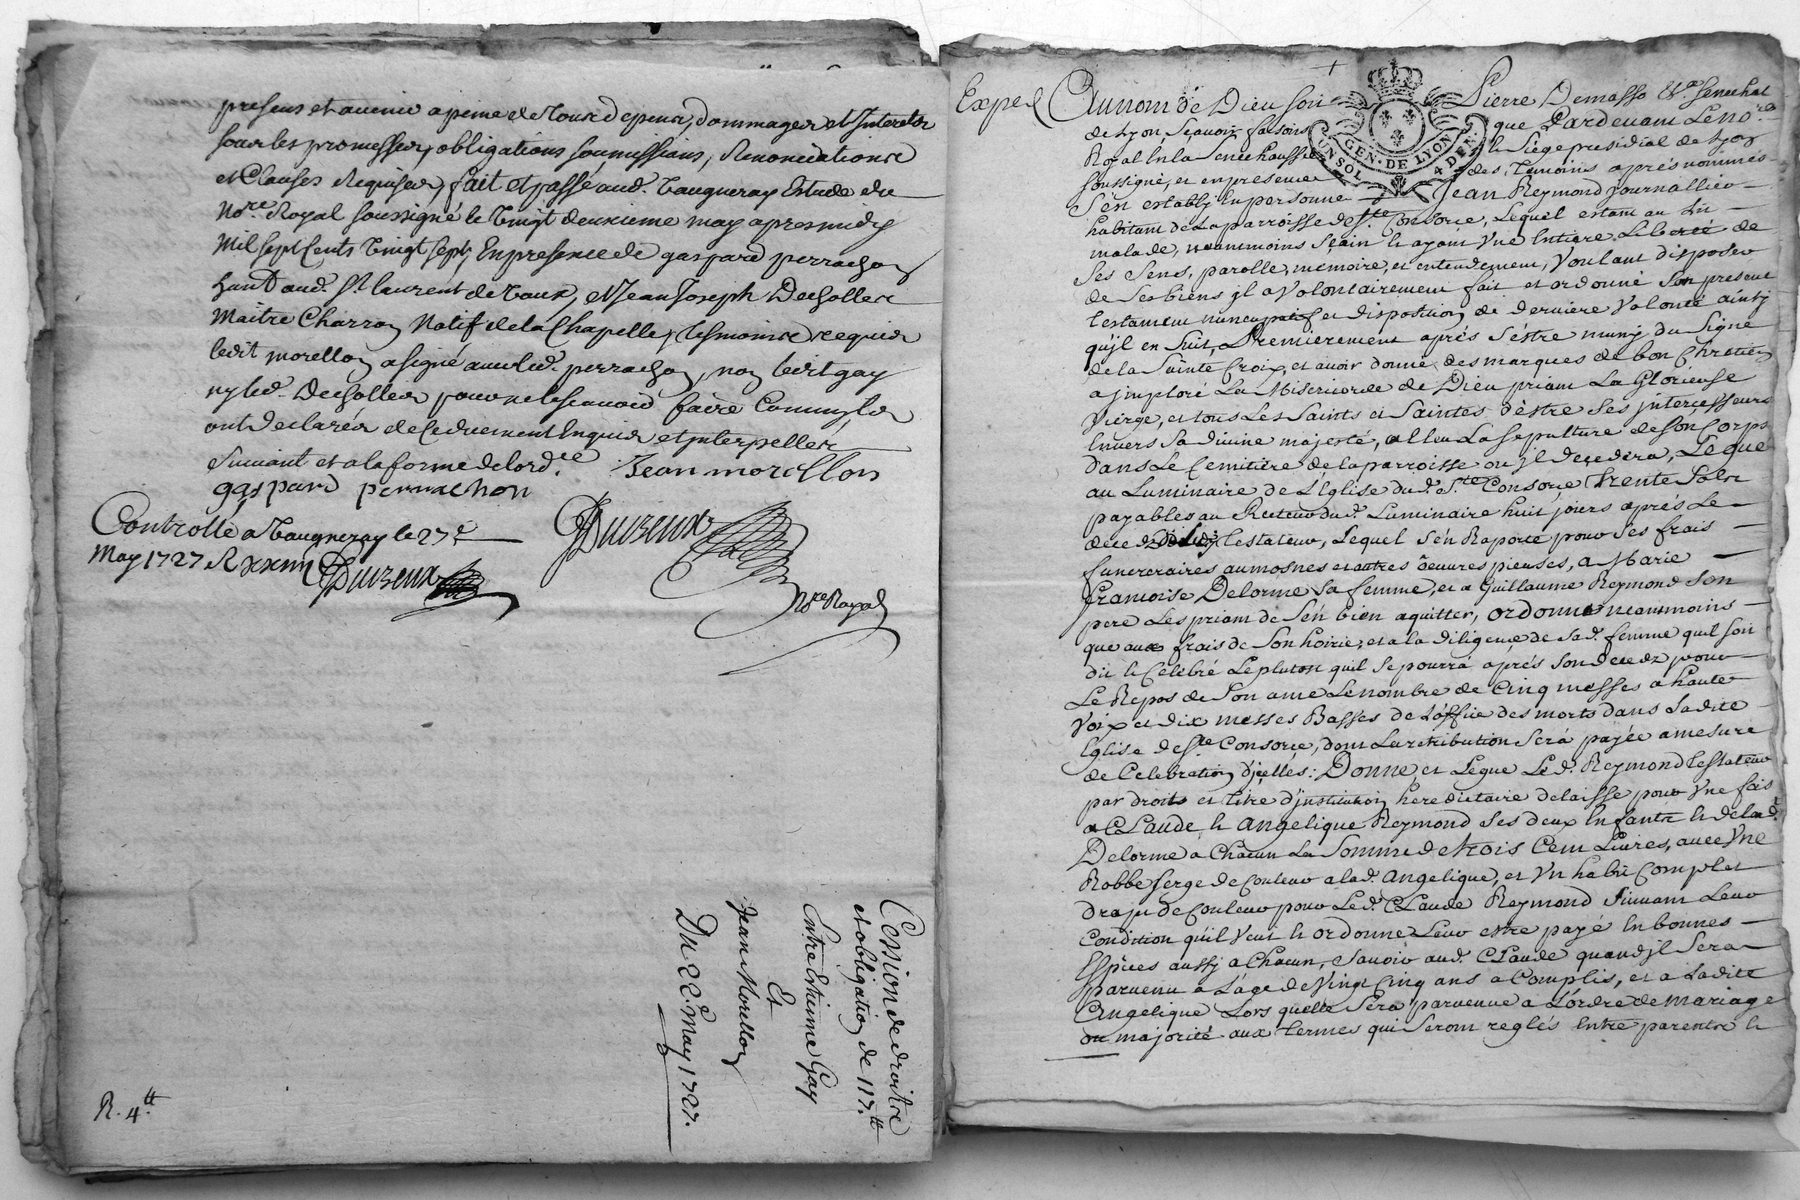 presens et avenir a peine de tous depens, dommages et Interets
sous les promesses, obligations soumissions, Renonciations
et Clauses Requises, fait et passé aud. Vaugneray Estude du
No.re Royal soussigné le vingt deuxieme may apres midy
Mil sept Cents vingt sept, En presence de gaspard perrachon
hant aud. St. laurent de vaux, et Jean Joseph Decholler
Maitre Charron Natif de la Chapelle, tesmoins requis
ledit morellon a signé avec led. perrachon, non ledit gay
ny led. Decholler pour ne le scavoir faire Comm'ils
ont declarés de ce duement Enquis et interpellés
Suivant et a la forme de lord.ce Jean morellon
gaspard perrachon
Controllé a Vaugneray le 27e
May 1727 R
Duvzeux
Duvzeux
N.re Royal
Cession de droits
et obligation de 117.tt
Entre Estienne Gay
Et
Jean Morellon
Du 22e. may 1727.
R. 4.tt
Exped
Au nom de Dieu soit Pierre Demasso Senechal
de Lyon Scavoir faisons que Pardevant Le No.re
Royal En la Senechaussée & Siege presidial de Lyon
soussigné, et en presence des Temoins aprés nommés
S'en establi En personne Jean Reymond Journallier
habitant de La parroisse de Ste. Consorce, Lequel estant au lit
malade, neantmoins Sain & ayant Vne Entiere Liberté de
Ses Sens, parolle, memoire, et entendement, Voulant disposer
de Ses biens jl a Volontairement fait et ordonné Son present
Testament nuncupatif et disposition de derniere Volonté ainsy
qu'jl en Suit, Premierement aprés S'éstre muny du Signe
de la Sainte Croix, et avoir donné des marques de bon Chretien
a jmploré La Misericorde de Dieu priant La Glorieuse
Vierge, et tous Les Saints et Saintes d'éstre Ses jntercesseurs
Envers Sa divine majesté, a Eleu La Sepulture de Son Corps
dans Le Cemitiere de la parroisse ou jl decedera, Legue
au Luminaire de L'Eglise dud. Ste. Consorce Trente Solz
payables au Recteur dud. Luminaire huit jours aprés Le
decedz dud. testateur, Lequel S'én Raporte pour Ses frais
funereraires aumosnes et autres oeuvres pieuses, a Marie
françoise Delorme Sa femme, et a Guillaume Reymond Son
pere Les priant de S'én bien aquitter, ordonne neantmoins
que aux frais de Son hoirie, et a la diligence de Sad. femme quil soit
dit & Celebré Le plutost quil Se pourra aprés Son decedz pour
Le Repos de Son ame Le nombre de Cinq messes a haute
Voix et dix messes Basses de L'office des morts dans Ladite
Eglise de Ste. Consorce, dont La retribution Sera payée a mesure
de Celebration d'jcelles: Donne, et Legue Led. Reymond Testateur
par droits et titre d'jnstitution hereditaire delaisse pour Vne fois
a Claude, & Angelique Reymond Ses deux Enfants & de lad.
Delorme a Chacun La Somme de trois Cent Livres, avec Vne
Robbe Serge de Couleur a lad. Angelique, et Vn habit Complet
drap de Couleur pour Led. Claude Reymond Suivant Leur
Condition qu'il Veut & ordonne Leur estre payé En bonnes
Espices aussy a Chacun, Scavoir aud. Claude quand jl Sera
parvenu a L'age de Vingt Cinq ans accomplis, et a Ladite
Angelique Lors quelle Sera parvenue a L'ordre de mariage
ou majorité aux Termes qui Seront reglés Entre parents &
GEN. DE LYON
UN SOL 4 DEN.